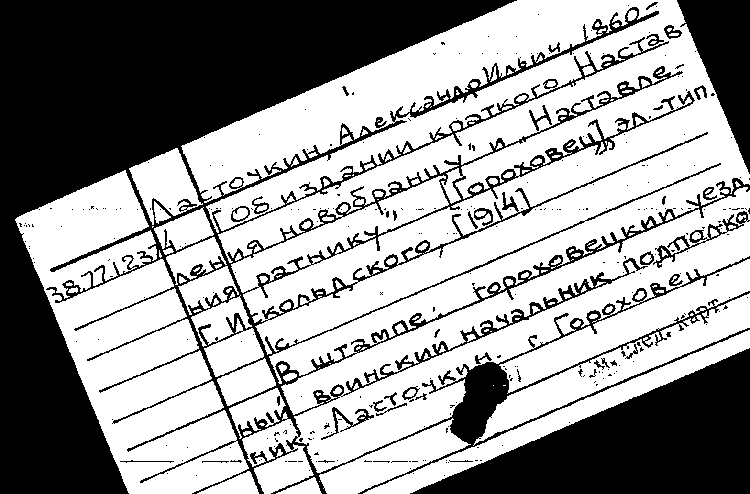 1.
Ласточкин, Александр Ильич, 1860-
38.77.1.2374
[Об издании краткого "Настав-
ления новобранцу" и "Наставле-
ния ратнику", [Гороховец], эл.-тип.
Г. Искольдского, [1914]
1с.
В штампе: гороховецкий уезд-
ный воинский начальник подполков-
ник Ласточкин. г. Гороховец.
См. след. карт.